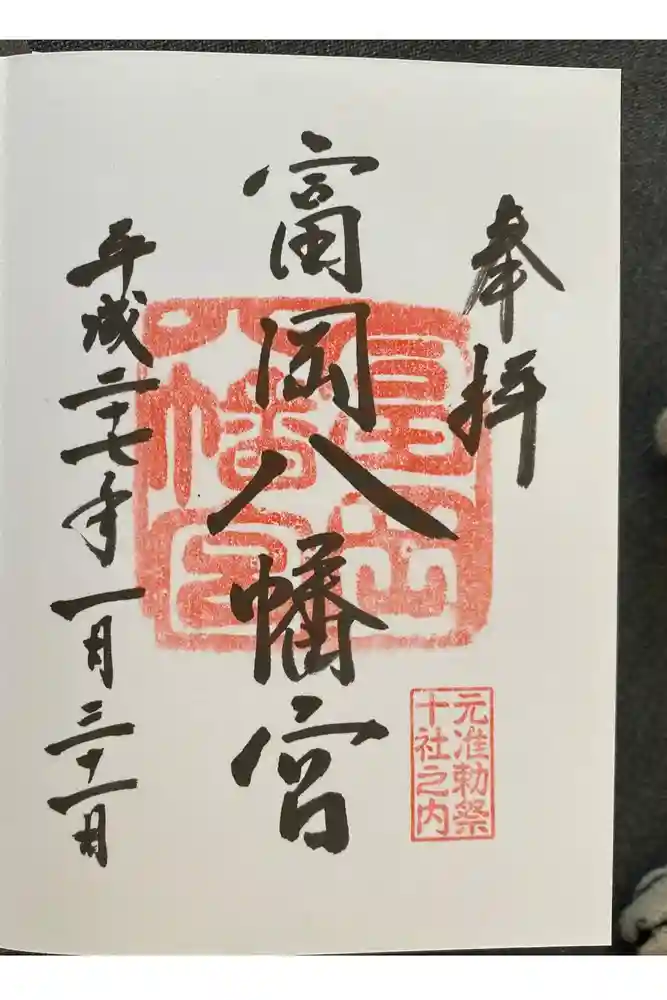 奉拝
富岡八幡宮
富岡八幡宮
元准勅祭
十社之内
平成二十七年一月三十一日